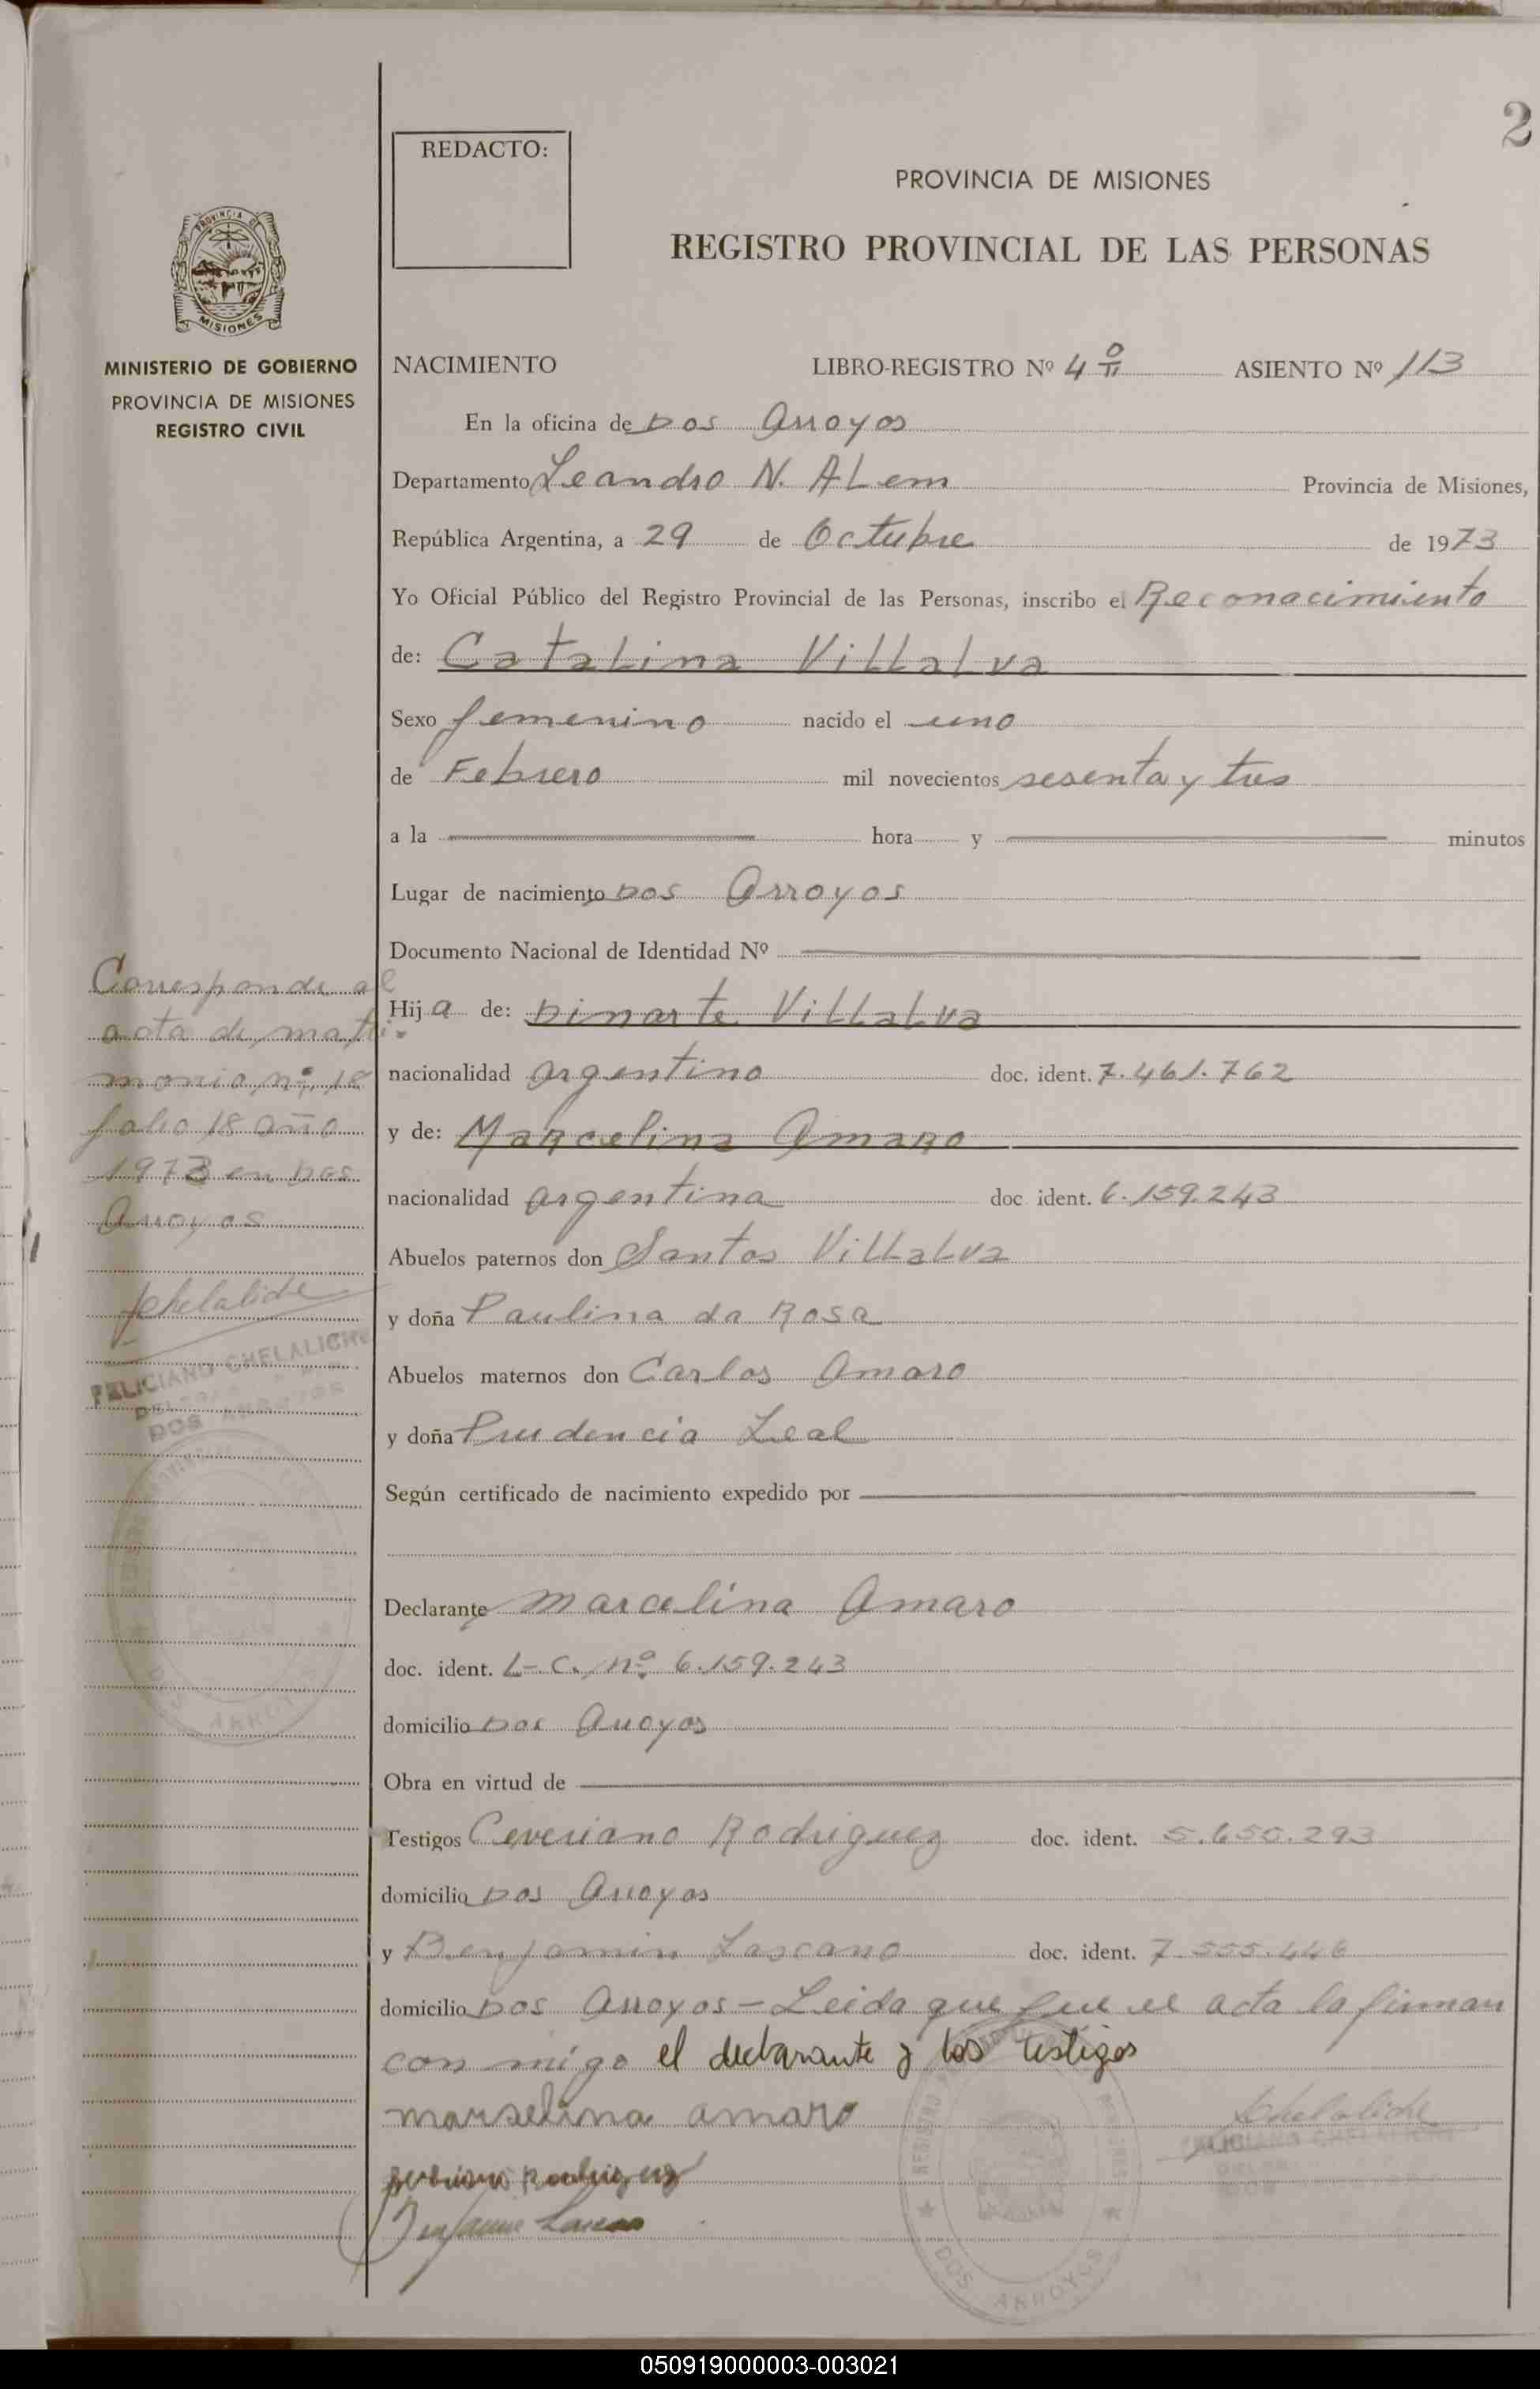 2
REDACTO:
PROVINCIA DE MISIONES
REGISTRO PROVINCIAL DE LAS PERSONAS
PROVINCIA DE
MISIONES
MINISTERIO DE GOBIERNO
PROVINCIA DE MISIONES
REGISTRO CIVIL
NACIMIENTO LIBRO-REGISTRO Nº 4 ASIENTO Nº 113
En la oficina de Dos Arroyos
Departamento Leandro N. ALem Provincia de Misiones,
República Argentina, a 29 de Octubre de 1973
Yo Oficial Público del Registro Provincial de las Personas, inscribo el Reconacimiento
de: Catalina Villalva
Sexo femenino nacido el uno
de Febrero mil novecientos sesenta y tres
a la hora y minutos
Lugar de nacimiento Dos Arroyos
Documento Nacional de Identidad Nº
Hij a de: Dinarte Villalva
nacionalidad argentino doc. ident. 7.461.762
y de: Marcelina Amaro
nacionalidad argentina doc ident. 6.159.243
Abuelos paternos don Santos Villalva
y doña Paulina da Rosa
Abuelos maternos don Carlos Amaro
y doña Prudencia Leal
Según certificado de nacimiento expedido por
Declarante Marcelina Amaro
doc. ident. L-C. Nº 6.159.243
domicilio Dos Arroyos
Obra en virtud de
Testigos Ceveriano Rodriguez doc. ident. 5.650.293
domicilio Dos Arroyos
y Benjamin Lascano doc. ident. 7.555.446
domicilio Dos Arroyos - Leida que fue el acta la firman
con migo el declarante y los testigos
marselina amaro
Rodriguez
Chelaliche
FELICIANO CHELALICHE
REGISTRO
DOS ARROYOS
Corresponde al
acta de matri-
monio nº 18
folio 18 año
1973 en Dos
Arroyos
Chelaliche
FELICIANO CHELALICHE
DOS ARROYOS
ARROYOS
050919000003-003021